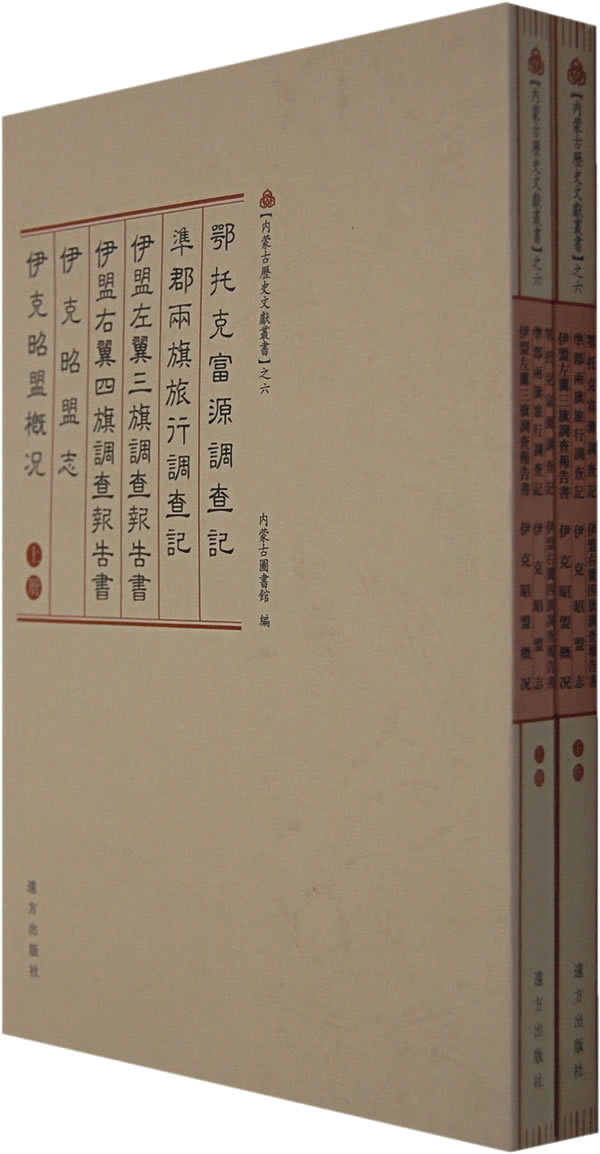 【内蒙古歷史文獻叢書】之六
内蒙古圖書館 編
鄂托克富源調查記
準郡兩旗旅行調查記
伊盟左翼三旗調查報告書
伊盟右翼四旗調查報告書
伊克昭盟志
伊克昭盟概況
上冊
遠方出版社
【内蒙古歷史文獻叢書】之六
鄂托克富源調查記
準郡兩旗旅行調查記
伊盟左翼三旗調查報告書
伊盟右翼四旗調查報告書
伊克昭盟志
伊克昭盟概況
上冊
遠方出版社
【内蒙古歷史文獻叢書】之六
鄂托克富源調查記
準郡兩旗旅行調查記
伊盟左翼三旗調查報告書
伊盟右翼四旗調查報告書
伊克昭盟志
伊克昭盟概況
下冊
遠方出版社